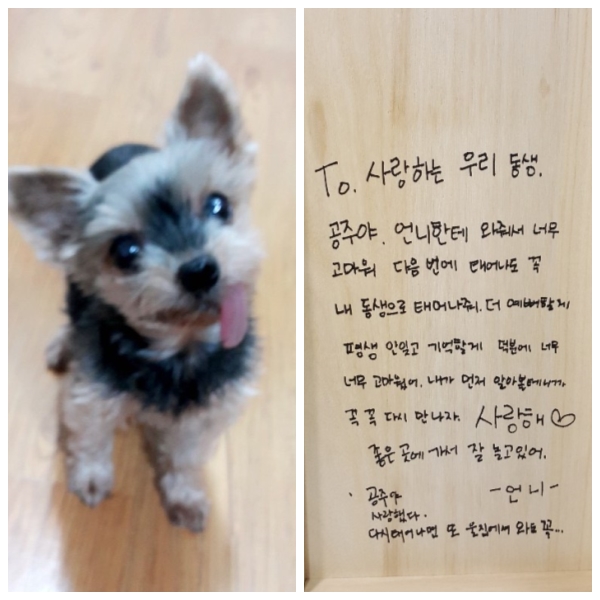 To. 사랑하는 우리 동생.
공주야. 언니한테 와줘서 너무
고마워 다음 번에 태어나도 꼭
내 동생으로 태어나줘. 더 예뻐할게
평생 안잊고 기억할게 덕분에 너무
너무 고마웠어. 내가 먼저 알아볼테니까
꼭 꼭 다시 만나자. 사랑해♡
좋은 곳에 가서 잘 놀고있어.
-언니-
공주야
사랑했다.
다시태어나면 또 울집에 와 꼭...